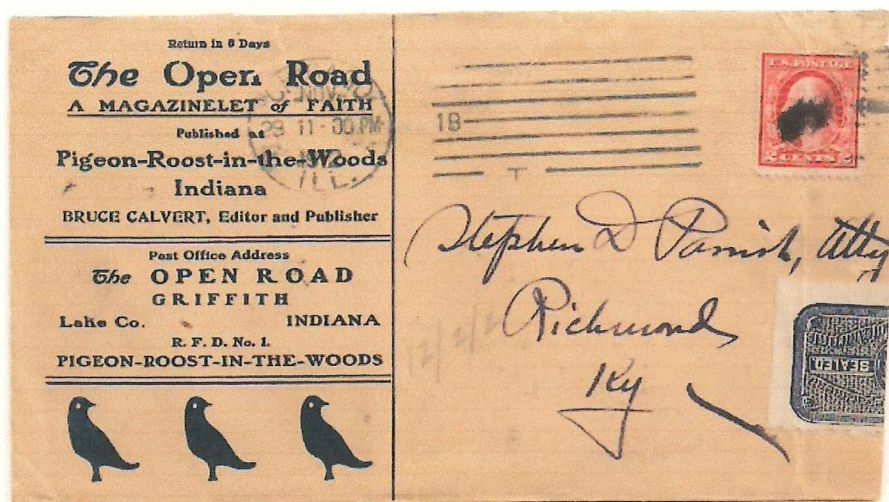 Return in 6 Days
The Open Road
A MAGAZINELET of FAITH
Published at
Pigeon-Roost-in-the-Woods
Indiana
BRUCE CALVERT, Editor and Publisher
Post Office Address
The OPEN ROAD
GRIFFITH
Lake Co. INDIANA
R. F. D. No. 1.
PIGEON-ROOST-IN-THE-WOODS
NOV
29 11-30 PM
ILL.
18
T
U.S. POSTAGE
2 CENTS 2
Stephen D Parrish, Atty
Richmond
Ky
12/2/2
SEALED